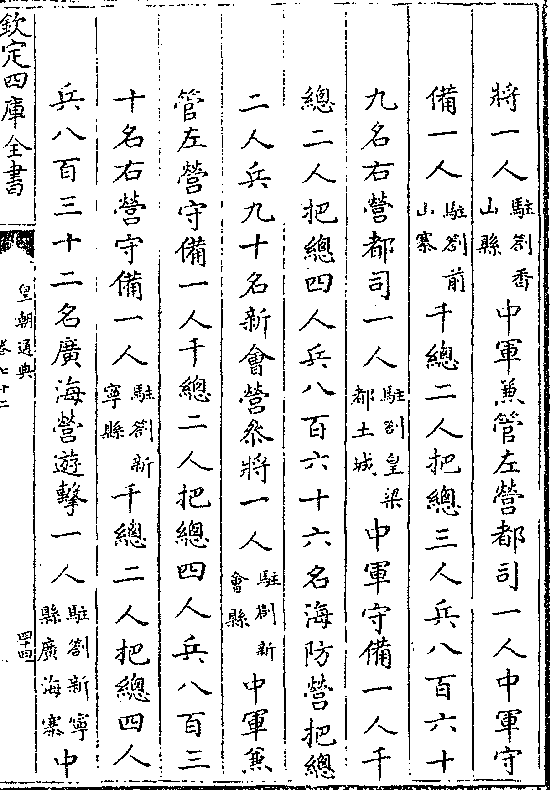 將一人駐劄香山縣中軍兼管左營都司一人中軍守
備一人駐劄前山寨千總二人把總三人兵八百六十
九名右營都司一人駐劄皇梁都土城中軍守備一人千
總二人把總四人兵八百六十六名海防營把總
二人兵九十名新會營叅將一人駐劄新會縣中軍兼
管左營守備一人千總二人把總四人兵八百三
十名右營守備一人駐劄新寧縣千總二人把總四人
兵八百三十二名廣海營遊擊一人駐劄新寧縣廣海寨中
欽定四庫全書
皇朝通典
卷七十二
四十四